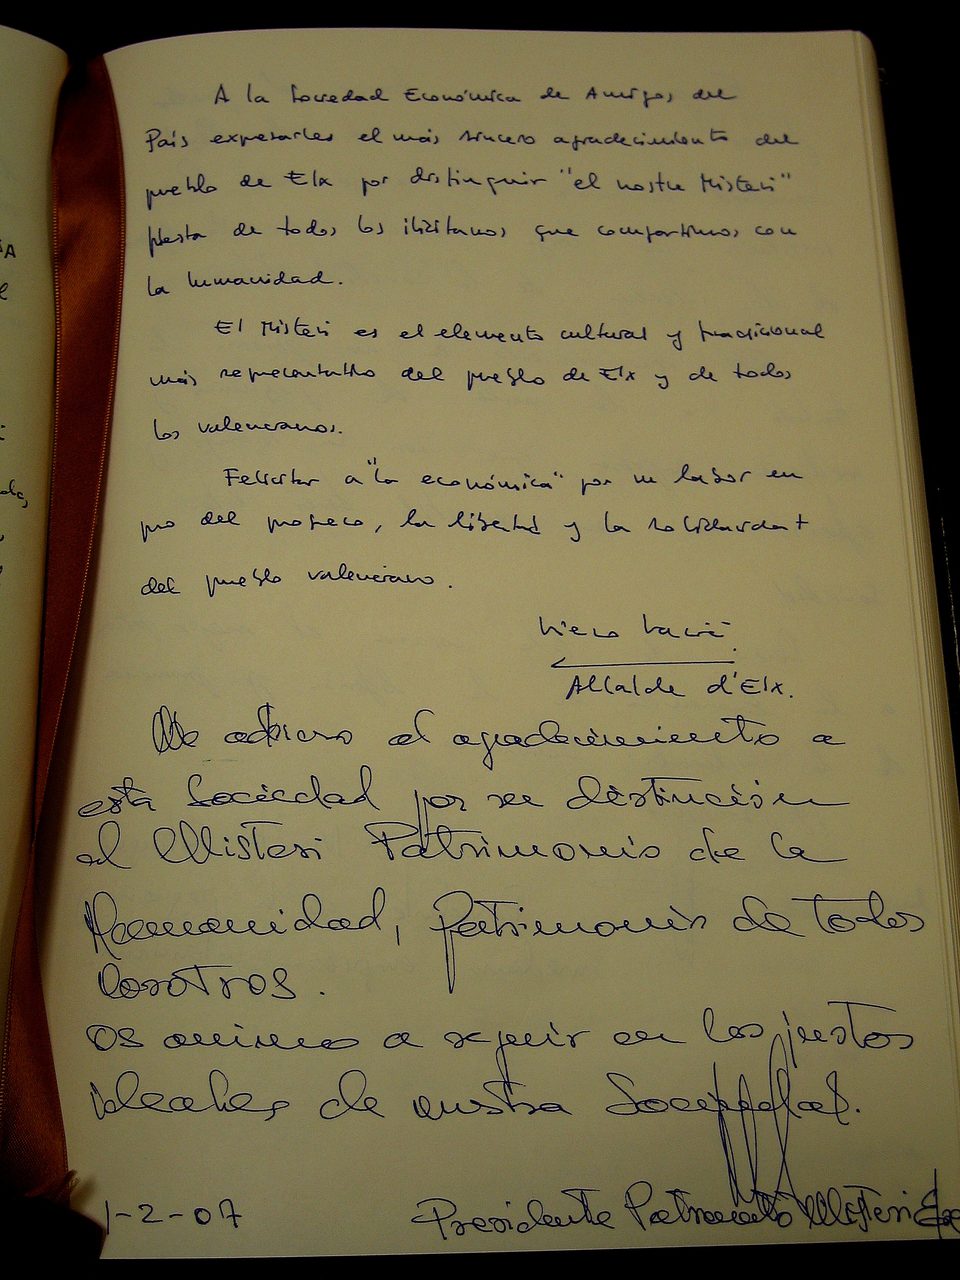 A la Sociedad Económica de Amigos del
País expresarles el más sincero agradecimiento del
pueblo de Elx por distinguir "el nostre Misteri"
fiesta de todos los ilicitanos que compartimos con
la humanidad.
El Misteri es el elemento cultural y tradicional
más representativo del pueblo de Elx y de todos
los valencianos.
Felicitar a "la económica" por su labor en
pro del progreso, la libertad y la solidaridat
del pueblo valenciano.
Alcalde d'Elx.
Me adhiero al agradecimiento a
esta Sociedad por su distinción
al Misteri Patrimonio de la
Humanidad, patrimonio de todos
nosotros.
os animo a seguir en los justos
ideales de nuestra Sociedad.
1-2-07
Presidente Patronato Misteri